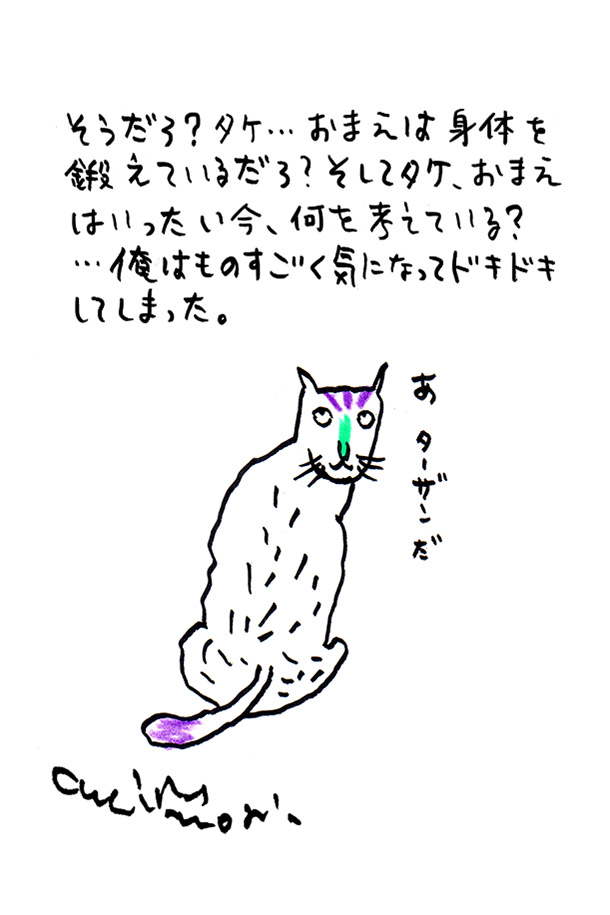 そうだろ?タケ…おまえは身体を
鍛えているだろ?そしてタケ、おまえ
はいったい今、何を考えている?
…俺はものすごく気になってドキドキ
してしまった。
あ ターザンだ